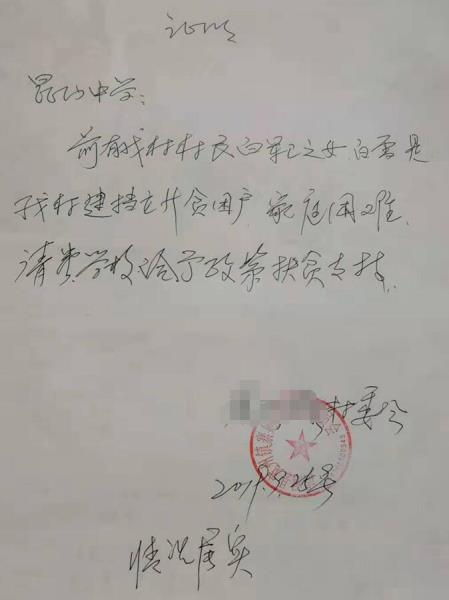 证明
昆山中学:
前有我村村民白军之女白雪是
我村建档立卡贫困户,家庭困难,
请贵学校给予政策扶贫支持.
村委会
2019.9.25号
情况属实